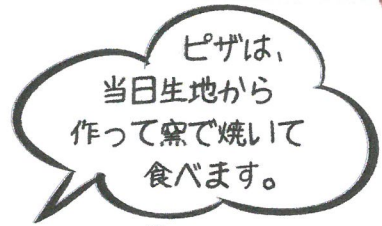 ピザは、
当日生地から
作って窯で焼いて
食べます。